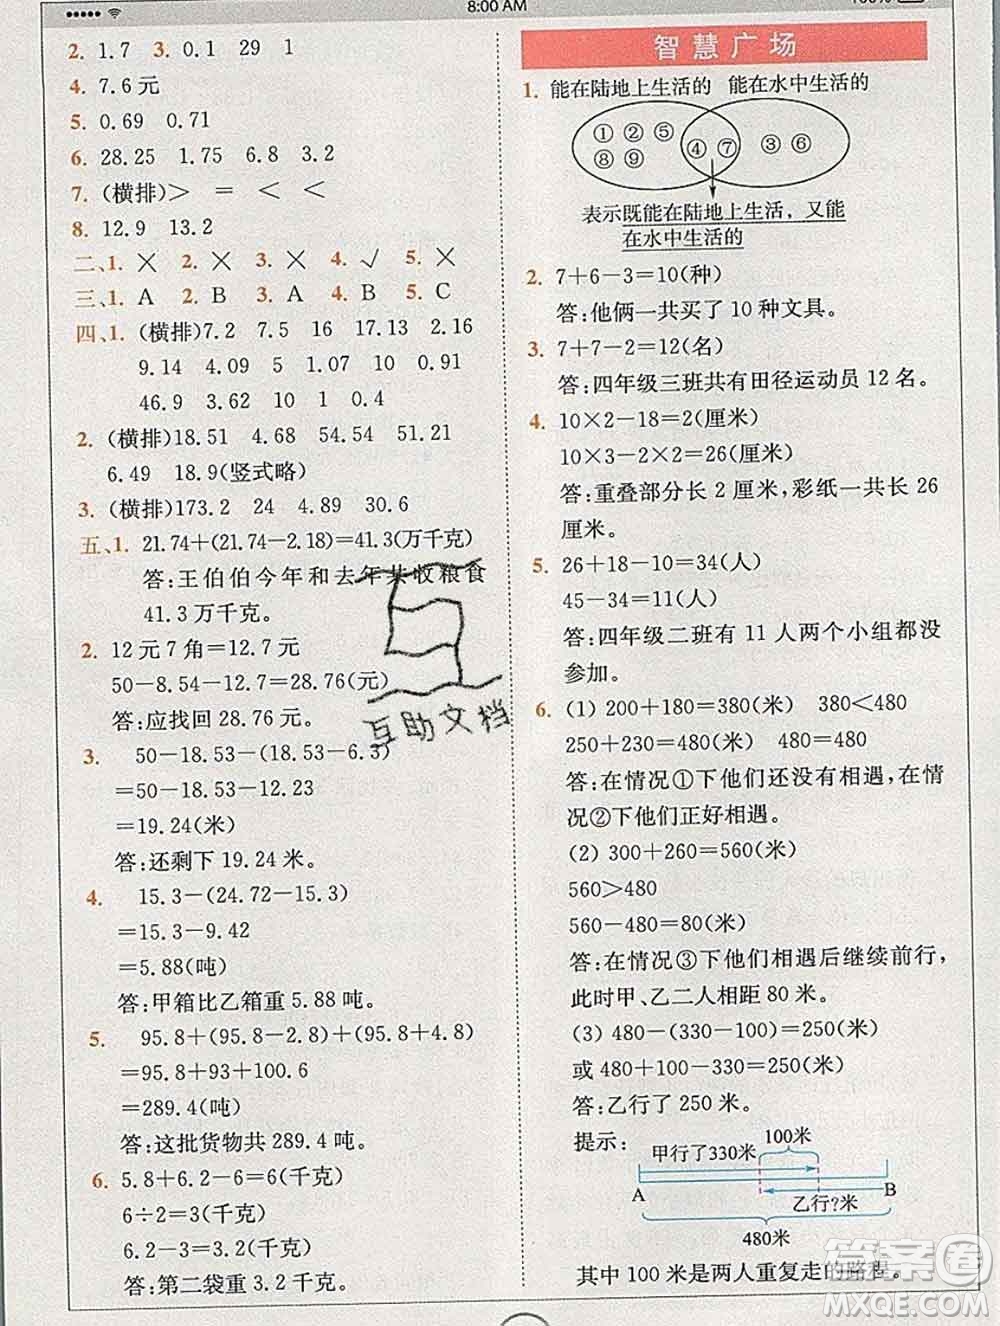 8:00 AM
100%
2. 1.7 3. 0.1 29 1
4. 7.6元
5. 0.69 0.71
6. 28.25 1.75 6.8 3.2
7. (横排)> = < <
8. 12.9 13.2
二、1. × 2. × 3. × 4. √ 5. ×
三、1. A 2. B 3. A 4. B 5. C
四、1. (横排)7.2 7.5 16 17.13 2.16
9.14 4.09 5 1.07 10 0.91
46.9 3.62 10 1 0.4
2. (横排)18.51 4.68 54.54 51.21
6.49 18.9(竖式略)
3. (横排)173.2 24 4.89 30.6
五、1. 21.74+(21.74-2.18)=41.3(万千克)
答:王伯伯今年和去年共收粮食
41.3万千克。
2. 12元7角=12.7元
50-8.54-12.7=28.76(元)
答:应找回28.76元。
3. 50-18.53-(18.53-6.3)
=50-18.53-12.23
=19.24(米)
答:还剩下19.24米。
4. 15.3-(24.72-15.3)
=15.3-9.42
=5.88(吨)
答:甲箱比乙箱重5.88吨。
5. 95.8+(95.8-2.8)+(95.8+4.8)
=95.8+93+100.6
=289.4(吨)
答:这批货物共289.4吨。
6. 5.8+6.2-6=6(千克)
6÷2=3(千克)
6.2-3=3.2(千克)
答:第二袋重3.2千克。
智慧广场
1. 能在陆地上生活的 能在水中生活的
① ② ⑤ ④ ⑦ ③ ⑥
⑧ ⑨
表示既能在陆地上生活，又能
在水中生活的
2. 7+6-3=10(种)
答:他俩一共买了10种文具。
3. 7+7-2=12(名)
答:四年级三班共有田径运动员12名。
4. 10×2-18=2(厘米)
10×3-2×2=26(厘米)
答:重叠部分长2厘米,彩纸一共长26
厘米。
5. 26+18-10=34(人)
45-34=11(人)
答:四年级二班有11人两个小组都没
参加。
6. (1) 200+180=380(米) 380<480
250+230=480(米) 480=480
答:在情况①下他们还没有相遇,在情
况②下他们正好相遇。
(2) 300+260=560(米)
560>480
560-480=80(米)
答:在情况③下他们相遇后继续前行,
此时甲、乙二人相距80米。
(3) 480-(330-100)=250(米)
或480+100-330=250(米)
答:乙行了250米。
提示:
100米
甲行了330米
A B
乙行?米
480米
其中100米是两人重复走的路程。
互助文档
答案圈
MXQE.COM